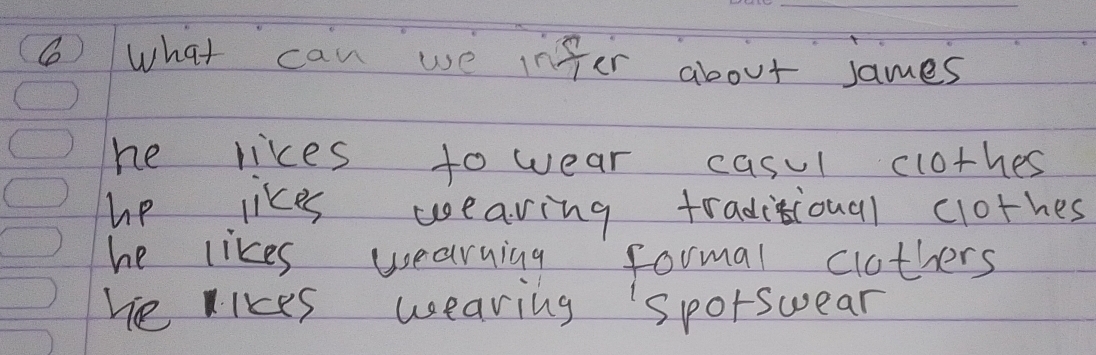 6 What can we infer about James
he likes to wear casul clothes
he likes wearing traditional clothes
he likes wearning formal clothers
he likes wearing sportswear